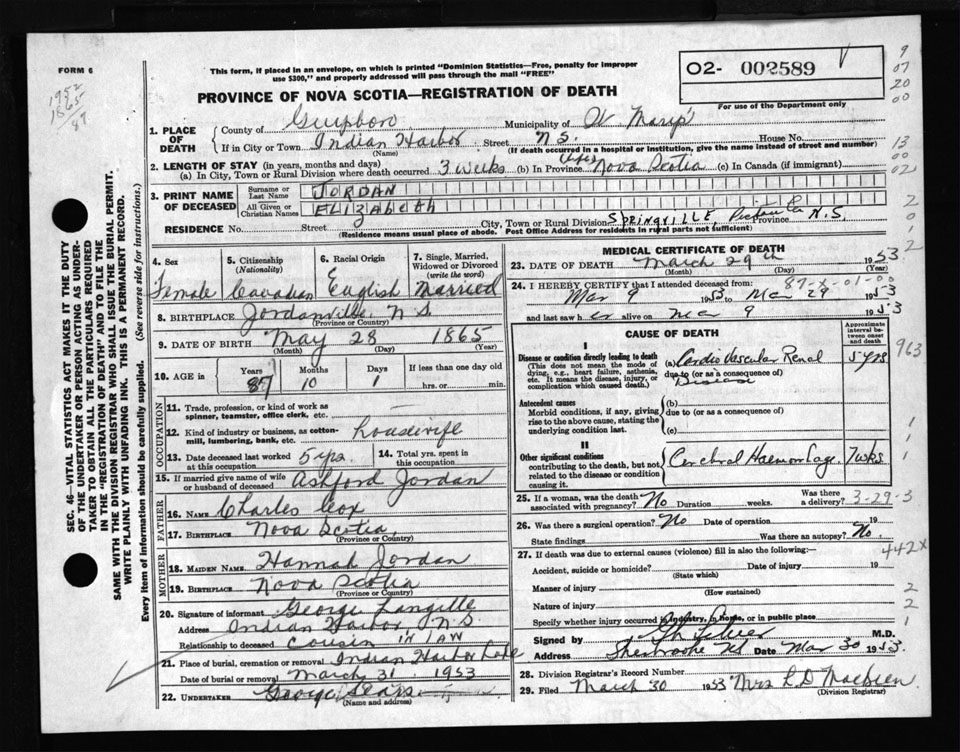 FORM 6
This form, if placed in an envelope, on which is printed "Dominion Statistics—Free, penalty for improper
use $300," and properly addressed will pass through the mail "FREE"
PROVINCE OF NOVA SCOTIA—REGISTRATION OF DEATH
02- 002589
For use of the Department only
1952
1865
87
9
07
20
00
13
00
02
2
0
0
2
1. PLACE OF DEATH
County of Guysboro Municipality of St Mary's
If in City or Town Indian Harbor Street N S. House No.
(Name) (If death occurred in a hospital or institution, give the name instead of street and number)
2. LENGTH OF STAY (in years, months and days)
(a) In City, Town or Rural Division where death occurred 3 weeks (b) In Province Life Nova Scotia (c) In Canada (if immigrant)
3. PRINT NAME OF DECEASED
Surname or Last Name JORDAN
All Given or Christian Names ELIZABETH
RESIDENCE No. Street City, Town or Rural Division SPRINGVILLE, Pictou Co Province N.S.
(Residence means usual place of abode. Post Office Address for residents in rural parts not sufficient)
4. Sex
Female
5. Citizenship (Nationality)
Canadian
6. Racial Origin
English
7. Single, Married, Widowed or Divorced (write the word)
Married
8. BIRTHPLACE Jordanville, N S.
(Province or Country)
9. DATE OF BIRTH May 28 1865
(Month) (Day) (Year)
10. AGE in Years 87 Months 10 Days 1 If less than one day old
hrs. or min.
OCCUPATION
11. Trade, profession, or kind of work as spinner, teamster, office clerk, etc.
12. Kind of industry or business, as cotton-mill, lumbering, bank, etc. housewife
13. Date deceased last worked at this occupation 5 yrs. 14. Total yrs. spent in this occupation
15. If married give name of wife or husband of deceased Ashford Jordan
FATHER
16. NAME Charles Cox
17. BIRTHPLACE Nova Scotia
(Province or Country)
MOTHER
18. MAIDEN NAME Hannah Jordan
19. BIRTHPLACE Nova Scotia
(Province or Country)
20. Signature of informant George Langille
Address Indian Harbor N S.
Relationship to deceased cousin in law
21. Place of burial, cremation or removal Indian Harbor Lake
Date of burial or removal March 31 1953
22. UNDERTAKER George Sears
(Name and address)
MEDICAL CERTIFICATE OF DEATH
23. DATE OF DEATH March 29th 1953
(Month) (Day) (Year)
24. I HEREBY CERTIFY that I attended deceased from: 87-X-01-00
Mar 9 1953 to Mar 29 1953
and last saw her alive on Mar 9 1953
CAUSE OF DEATH
Approximate interval between onset and death
I
Disease or condition directly leading to death
(This does not mean the mode of dying, e.g., heart failure, asthenia, etc. It means the disease, injury, or complication which caused death.)
(a) Cardio Vascular Renal Disease 5 yrs
due to (or as a consequence of)
963
Antecedent causes
Morbid conditions, if any, giving rise to the above cause, stating the underlying condition last.
(b)
due to (or as a consequence of)
(c)
II
Other significant conditions
contributing to the death, but not related to the disease or condition causing it.
Cerebral Haemorrhage. 7 wks.
1
1
1
25. If a woman, was the death associated with pregnancy? No Duration weeks. Was there a delivery? 3-29-3
26. Was there a surgical operation? No Date of operation 19
State findings Was there an autopsy? No.
442X
27. If death was due to external causes (violence) fill in also the following:—
Accident, suicide or homicide? Date of injury 19
(State which)
Manner of injury
(How sustained)
Nature of injury
Specify whether injury occurred in industry, in home, or in public place
2
2
1
Signed by M.D.
Address Sherbrooke NS Date Mar 30 1953
28. Division Registrar's Record Number
29. Filed March 30 1953 Mrs L D MacBeen
(Division Registrar)
SEC. 46—VITAL STATISTICS ACT MAKES IT THE DUTY
OF THE UNDERTAKER OR PERSON ACTING AS UNDER-
TAKER TO OBTAIN ALL THE PARTICULARS REQUIRED
IN THE "REGISTRATION OF DEATH" AND TO FILE THE
SAME WITH THE DIVISION REGISTRAR WHO SHALL ISSUE THE BURIAL PERMIT.
WRITE PLAINLY WITH UNFADING INK. THIS IS A PERMANENT RECORD.
Every item of information should be carefully supplied. (See reverse side for instructions.)